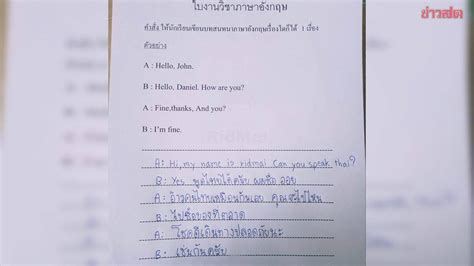 ข่าวสด
ใบงานวิชาภาษาอังกฤษ
คำสั่ง ให้นักเรียนเขียนบทสนทนาภาษาอังกฤษเรื่องใดก็ได้ 1 เรื่อง
ตัวอย่าง
A : Hello, John.
B : Hello, Daniel. How are you?
A : Fine,thanks, And you?
B : I'm fine.
A: Hi, my name is ridmai Can you speak thai?
B: Yes พูดไทยได้ครับ ผมชื่อ ออย
A: อ้าวคนไทยเหมือนกันเลย คุณจะไปไหน
B: ไปซื้อของที่ตลาด
A: โชคดีเดินทางปลอดภัยนะ
B: เช่นกันครับ